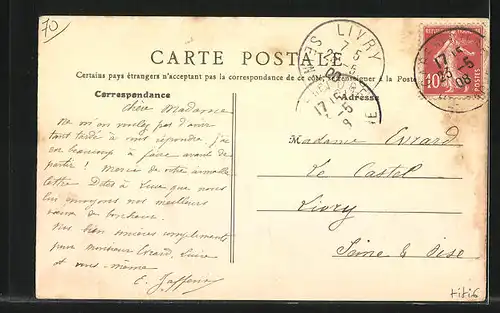 70
CARTE POSTALE
Certains pays étrangers n'acceptent pas la correspondance de ce côté, se renseigner à la Poste
Correspondance
Adresse
LIVRY
7 5
26 5
08
17 15
26 -5
08
RÉPUBLIQUE FRANÇAISE
POSTES
10
chère Madame
Ne m'en voulez pas d'avoir
tant tardé à vous répondre. J'ai
eu beaucoup à faire avant de
partir ! Merci de votre aimable
lettre Dites à Luce que nous
lui envoyons nos meilleurs
vœux de bonheur.
Nos bien sincères compliments
pour monsieur Evrard, Luce
et vous-même
Madame Evrard
Le Castel
Livry
Seine & Oise